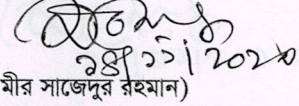 ১৪|১১|২০২০
মীর সাজেদুর রহমান)